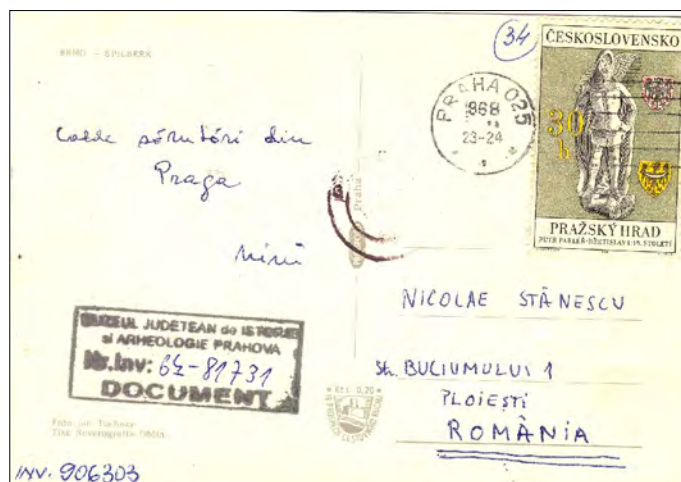 34
BRNO - ŠPILBERK
ČESKOSLOVENSKO
30 h
PRAŽSKÝ HRAD
PETR PARLÉŘ-BŘETISLAV I. 14. STOLETÍ
PRAHA 025
968
23-24
Calde sărutări din
Praga
Praha
NICOLAE STĂNESCU
Str. BUCIUMULUI 1
PLOIEȘTI
ROMÂNIA
MUZEUL JUDEȚEAN de ISTORIE
si ARHEOLOGIE PRAHOVA
Nr. Inv: 64-81731
DOCUMENT
Kčs 0,20
Foto Jan
Tisk Severografie
INV. 906303